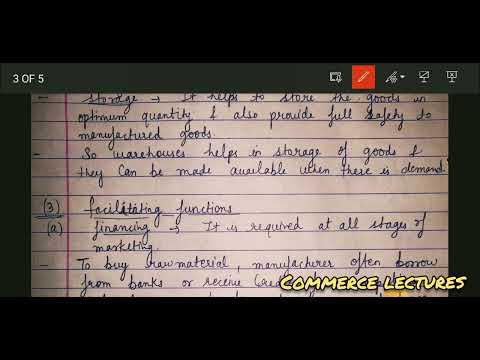 3 OF 5
- storage → It helps to store the goods in
optimum quantity & also provide full safety to
manufactured goods.
- So warehouses helps in storage of goods &
they can be made available when there is demand.
(3) facilitating functions
(a) financing → It is required at all stages of
marketing.
- To buy raw material, manufacturer often borrow
from banks or receive
COMMERCE LECTURES